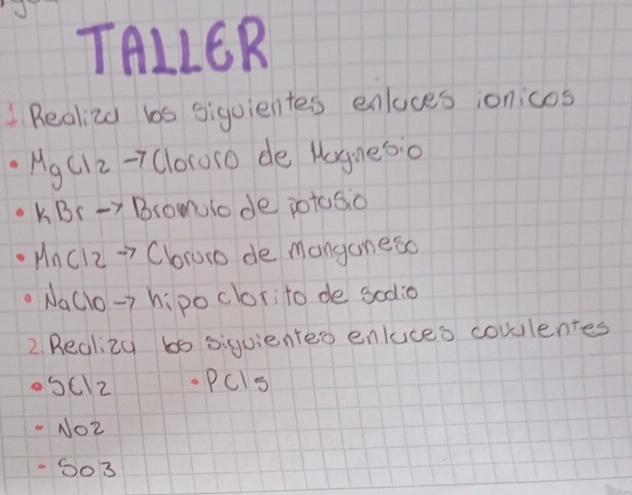 TALLER
1. Realiza los siguientes enlaces ionicos
• MgCl2 → Cloruro de Magnesio
• KBr → Bromuro de potasio
• MnCl2 → Cloruro de manganeso
• NaClO → hipoclorito de sodio
2. Realiza los siguientes enlaces covalentes
• SCl2 • PCl5
• NO2
• SO3